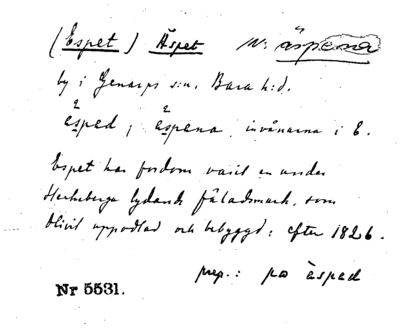 (Espet) Äspet N: äspena
by i Genarps s:n. Bara h:d.
ĕsped; ĕspena invånarna i E.
Espet har fordom varit en under
Häckeberga lydande fäladsmark, som
blivit uppodlad och bebyggd efter 1826.
prep.: på äspad
Nr 5531.